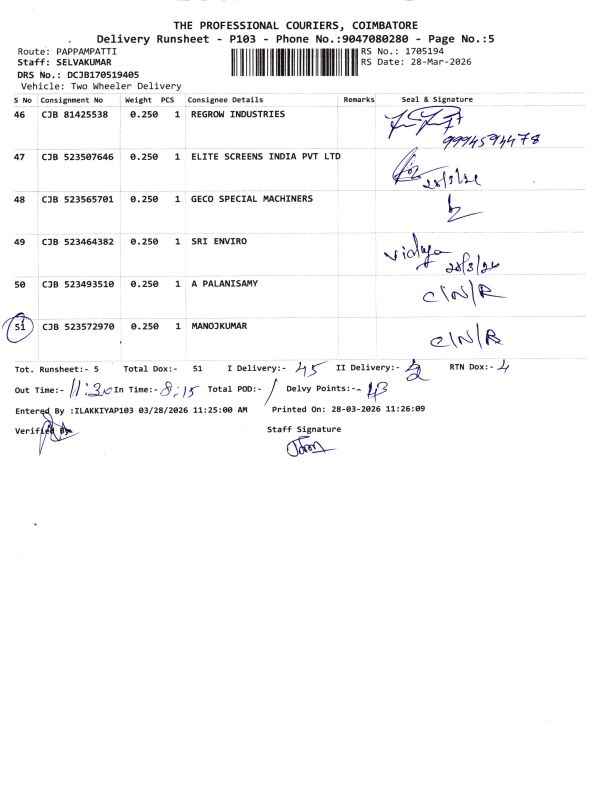 THE PROFESSIONAL COURIERS, COIMBATORE
Delivery Runsheet - P103 - Phone No.:9047080280 - Page No.:5
Route: PAPPAMPATTI RS No.: 1705194
Staff: SELVAKUMAR RS Date: 28-Mar-2026
DRS No.: DCJB170519405
Vehicle: Two Wheeler Delivery
S No Consignment No Weight PCS Consignee Details Remarks Seal & Signature
46 CJB 81425538 0.250 1 REGROW INDUSTRIES
9994594478
47 CJB 523507646 0.250 1 ELITE SCREENS INDIA PVT LTD
28/3/26
48 CJB 523565701 0.250 1 GECO SPECIAL MACHINERS
49 CJB 523464382 0.250 1 SRI ENVIRO Vidhya
28/3/26
50 CJB 523493510 0.250 1 A PALANISAMY C/N/R
51 CJB 523572970 0.250 1 MANOJKUMAR C/N/R
Tot. Runsheet:- 5 Total Dox:- 51 I Delivery:- 45 II Delivery:- 2 RTN Dox:- 4
Out Time:- 11:30 In Time:- 8:15 Total POD:- / Delvy Points:- 43
Entered By :ILAKKIYAP103 03/28/2026 11:25:00 AM Printed On: 28-03-2026 11:26:09
Verified By Staff Signature